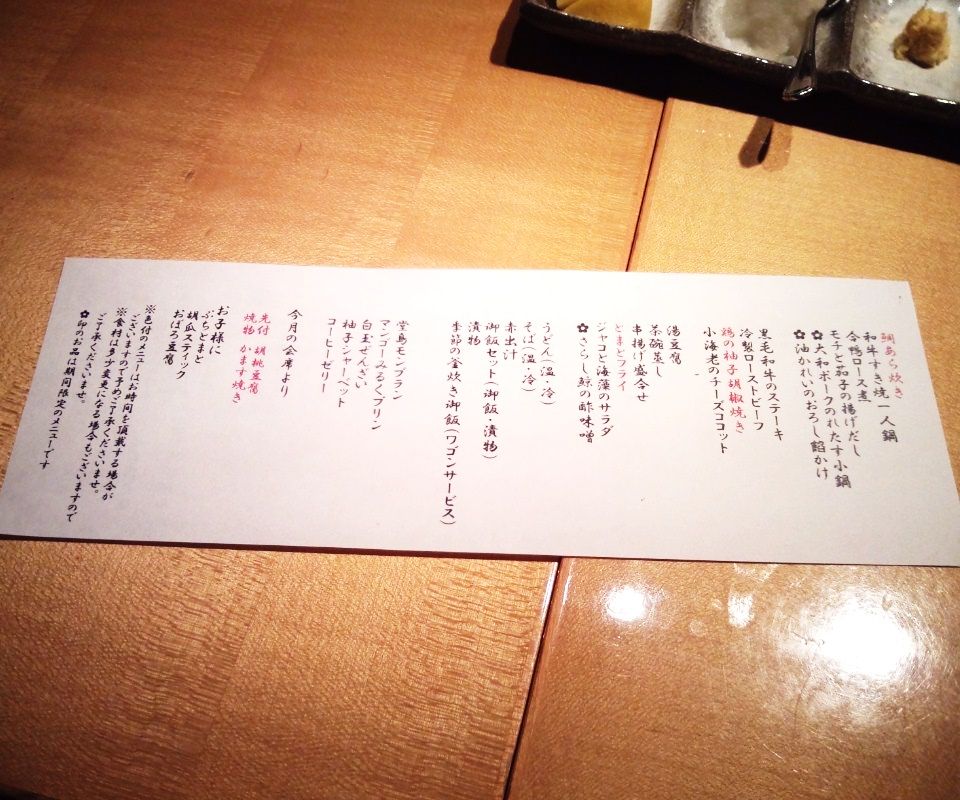 鯛あら炊き
和牛すき焼一人鍋
合鴨ロース煮
モチと茄子の揚げだし
✿大和ポークのれたす小鍋
✿油かれいのおろし餡かけ
黒毛和牛のステーキ
冷製ローストビーフ
鶏の柚子胡椒焼き
小海老のチーズココット
湯豆腐
茶碗蒸し
串揚げ盛合せ
とまとフライ
ジャコと海藻のサラダ
✿さらし鯨の酢味噌
うどん(温・冷)
そば(温・冷)
赤出汁
御飯セット(御飯・漬物)
漬物
季節の釜炊き御飯(ワゴンサービス)
堂島モンブラン
マンゴーみるくプリン
白玉ぜんざい
柚子シャーベット
コーヒーゼリー
今月の会席より
先付 胡桃豆腐
焼物 かます焼き
お子様に
ぷちとまと
胡瓜スティック
おぼろ豆腐
※色付のメニューはお時間を頂戴する場合が
ございますので予めご了承くださいませ。
※食材は多少変更になる場合もございますので
ご了承くださいませ。
✿印のお品は期間限定のメニューです